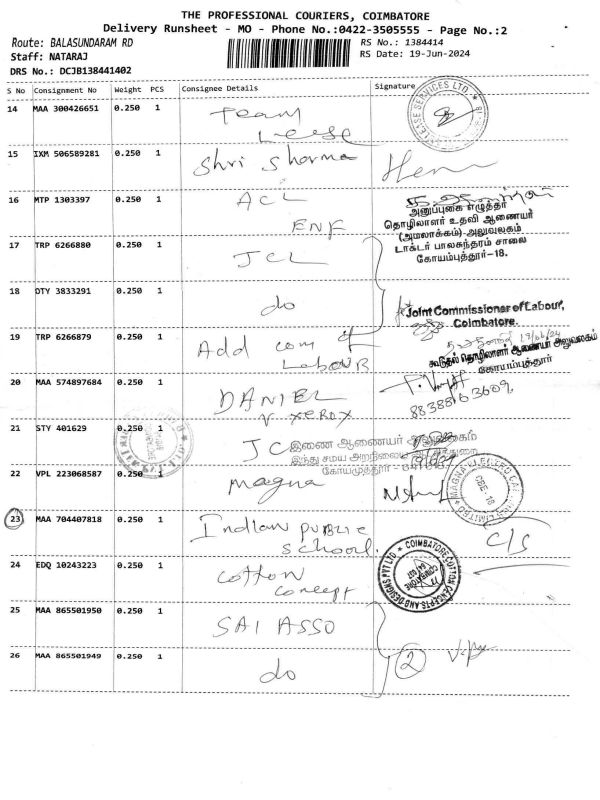 THE PROFESSIONAL COURIERS, COIMBATORE
Delivery Runsheet - MO - Phone No.:0422-3505555 - Page No.:2
Route: BALASUNDARAM RD
RS No.: 1384414
Staff: NATARAJ
RS Date: 19-Jun-2024
DRS No.: DCJB138441402
S No Consignment No Weight PCS Consignee Details Signature
14 MAA 300426651 0.250 1 Team
Leese
15 IXM 506589281 0.250 1 Shri Sharma
16 MTP 1303397 0.250 1 ACL
ENF
அனுப்புகை எழுத்தர்
தொழிலாளர் உதவி ஆணையர்
(அமலாக்கம்) அலுவலகம்
டாக்டர் பாலசுந்தரம் சாலை
கோயம்புத்தூர்-18.
17 TRP 6266880 0.250 1 JCL
18 OTY 3833291 0.250 1 do
Joint Commissioner of Labour,
Coimbatore.
19 TRP 6266879 0.250 1 Add com of
Labour
19/06/24
கூடுதல் தொழிலாளர் ஆணையர் அலுவலகம்
கோயம்புத்தூர்
20 MAA 574897684 0.250 1 DANIEL
XEROX
21 STY 401629 0.250 1 JC
இணை ஆணையர் அலுவலகம்
இந்து சமய அறநிலையத்துறை
கோயமுத்தூர்
22 VPL 223068587 0.250 1 Magna
CBE-18
23 MAA 704407818 0.250 1 Indian public
School.
C/S
24 EDQ 10243223 0.250 1 Cotton
concept
COIMBATORE COTTON CONCEPTS AND DESIGNS PVT LTD
25 MAA 865501950 0.250 1 SAI ASSO
26 MAA 865501949 0.250 1 do
2